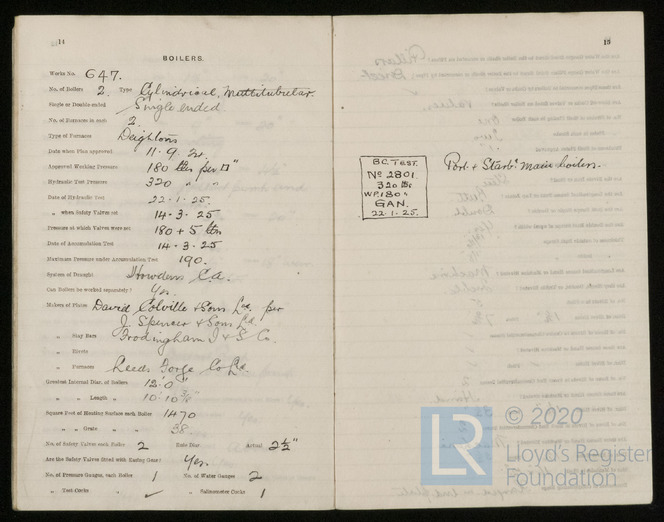 14
BOILERS.
Works No. 647.
No. of Boilers 2. Type Cylindrical Multitubular.
Single or Double-ended Single ended
No. of Furnaces in each 2.
Type of Furnaces Deighton's
Date when Plan approved 11.9.24.
Approved Working Pressure 180 lbs per □"
Hydraulic Test Pressure 320 " "
Date of Hydraulic Test 22.1.25.
" when Safety Valves set 14.3.25
Pressure at which Valves were set 180 + 5 lbs
Date of Accumulation Test 14.3.25
Maximum Pressure under Accumulation Test 190.
System of Draught Howdens C.A.
Can Boilers be worked separately? Yes.
Makers of Plates David Colville & Sons Ltd. per
J. Spencer & Sons Ltd.
" Stay Bars Frodingham I & S Co.
" Rivets
" Furnaces Leeds Forge Co Ld.
Greatest Internal Diam. of Boilers 12'0"
" " Length " 10'10
Square Feet of Heating Surface each Boiler 1470
" " Grate " " 38.
No. of Safety Valves each Boiler 2 Rule Diar. Actual 2½"
Are the Safety Valves fitted with Easing Gear? Yes.
No. of Pressure Gauges, each Boiler 1 No. of Water Gauges 2
" Test Cocks " ✓ " Salinometer Cocks 1
15
B.C. TEST.
No 2801.
320 lbs
W.P. 180 "
GAN.
22.1.25.
Port & Starbd. Main boilers.
LR © 2020
Lloyd's Register
Foundation